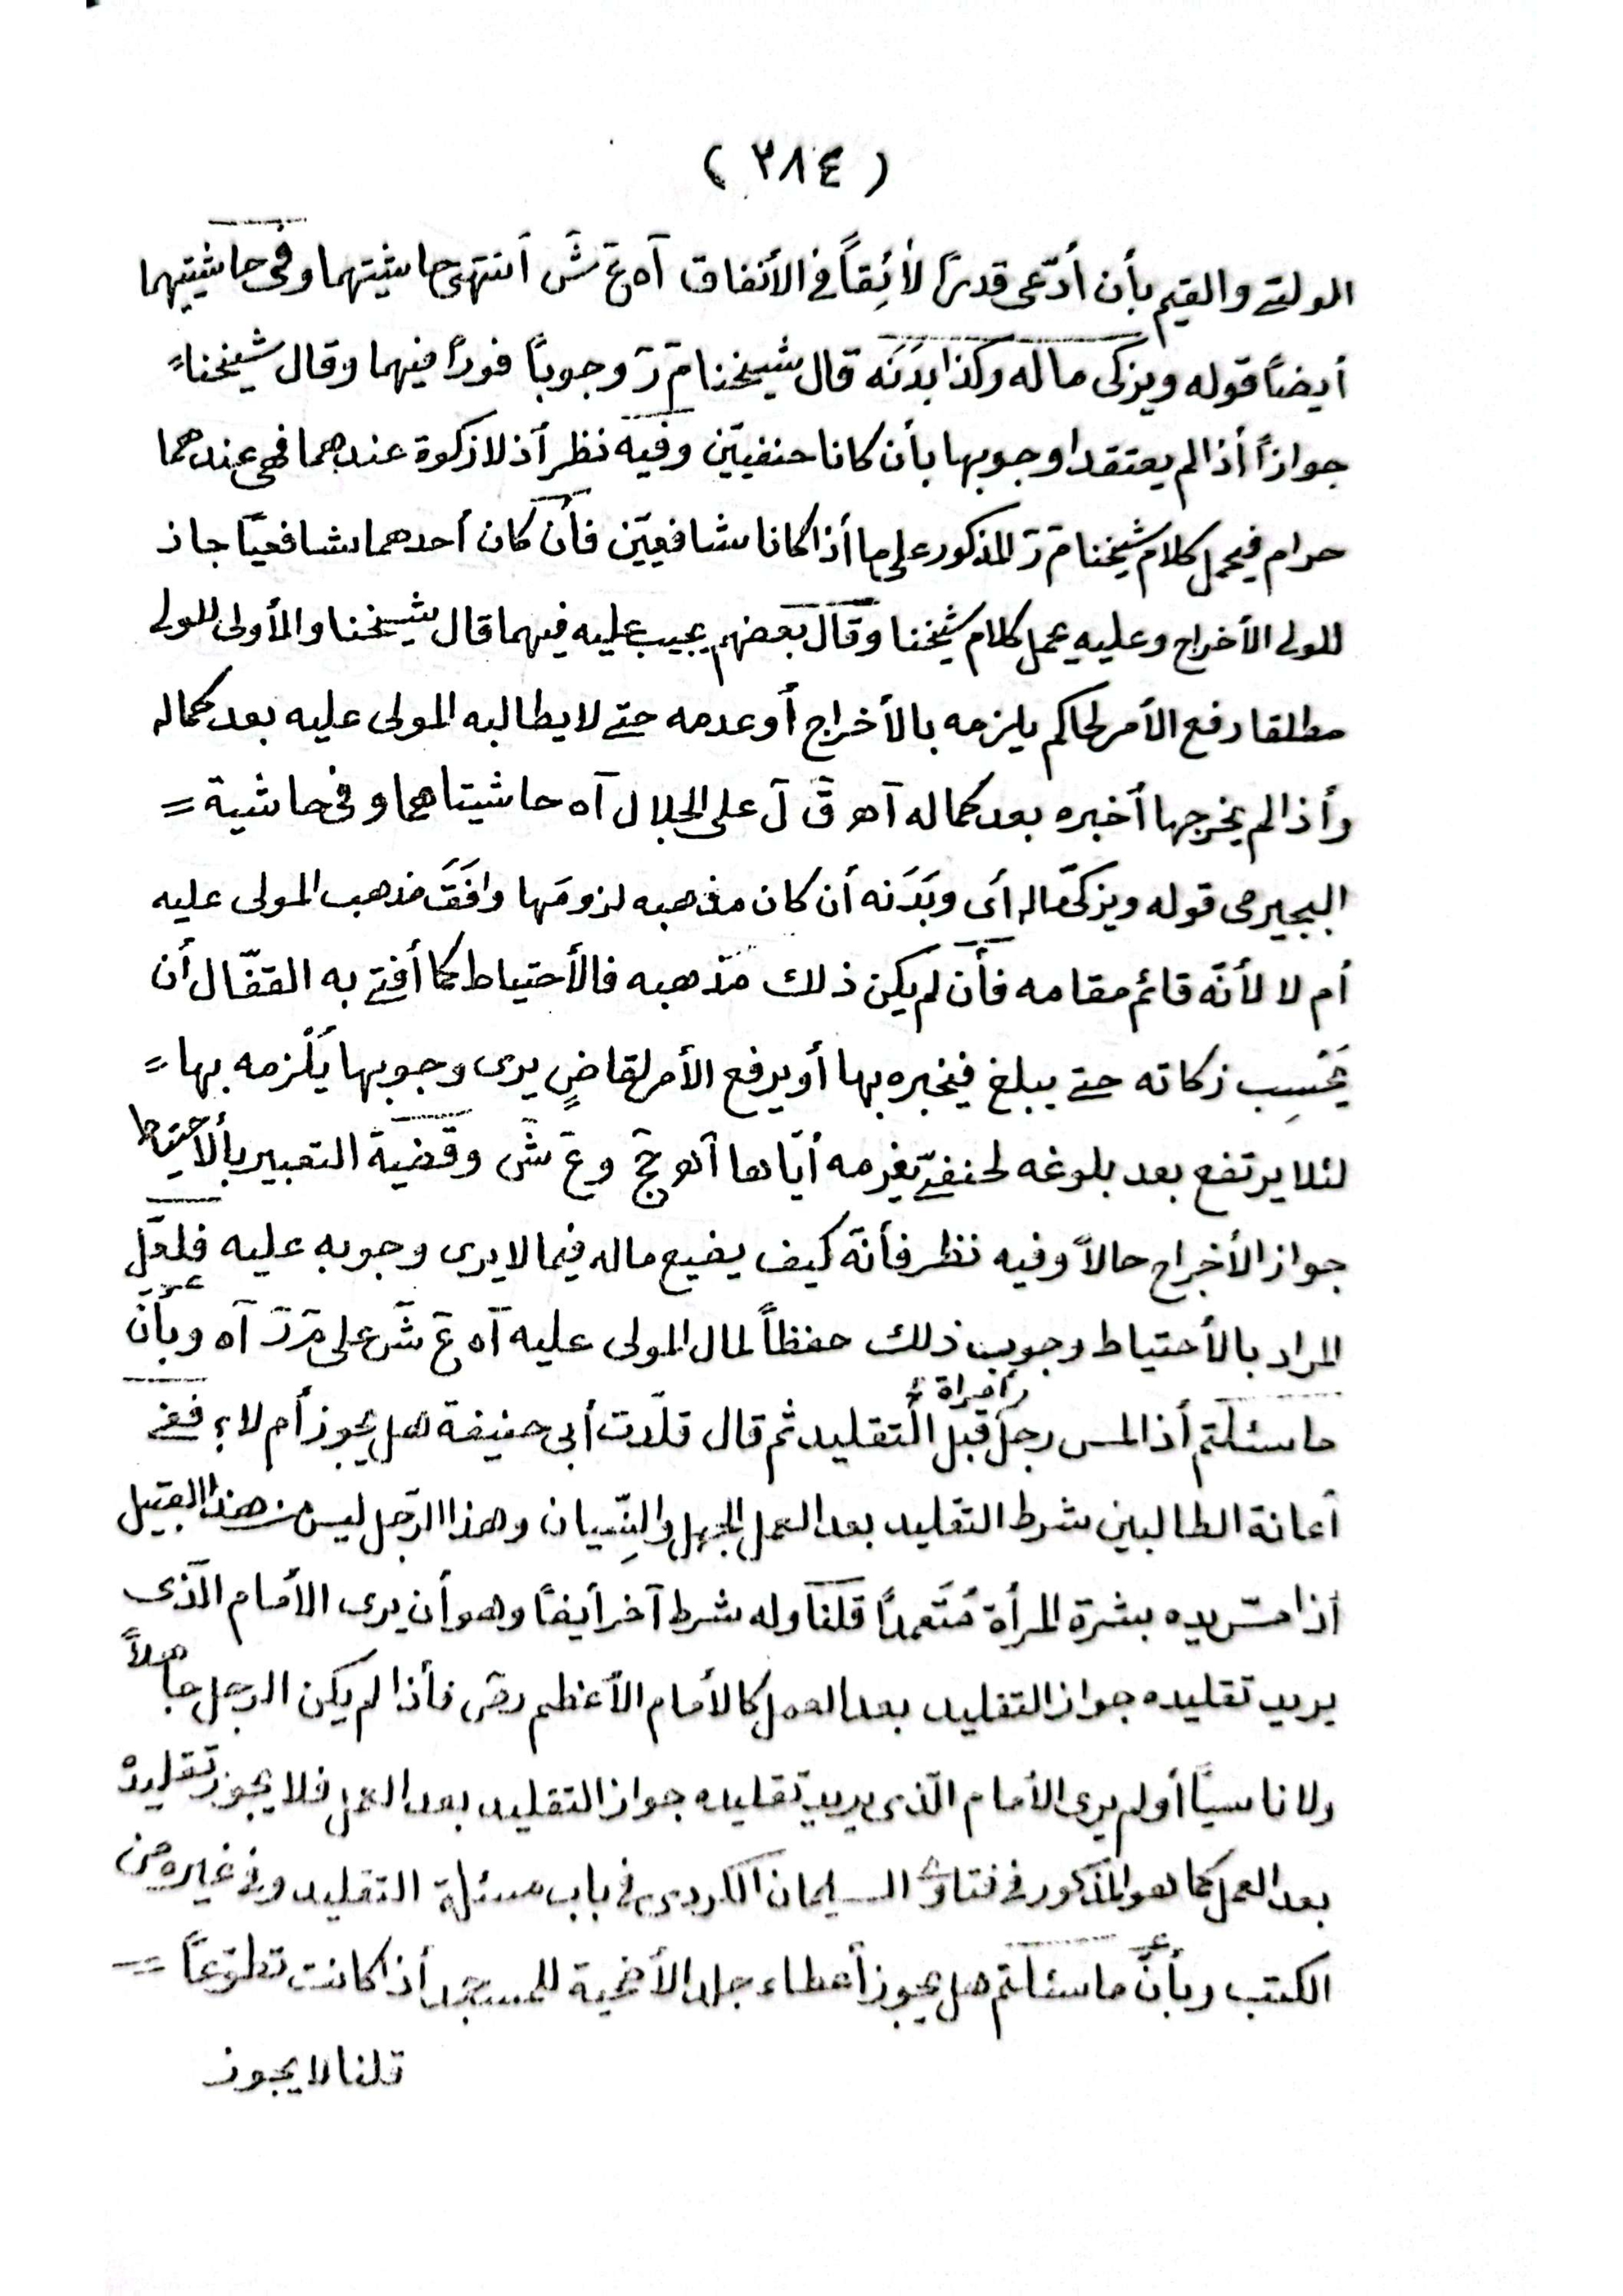 ( ٣٨٤ )
الولىّ والقيم بأن أدّعى قدرًا لأئِقاً في الأنفاق آه عَ شَ أنتهى حاشيتهما وفى حاشيتيهما
أيضاً قوله ويزكى ماله وكذا بدَنَه قال شيخنا مَ رَ وجوباً فوراً فيهما وقال شيخنا =
جوازاً أذا لم يعتقدا وجوبها بأن كانا حنفيّين وفيه نظر أذ لا زكوة عندهما فهى عندهما
حرام فيحمل كلام شيخنا مَ رَ المذكور على ما أذا كانا شافعيّين فأن كان أحدهما شافعيّا جاز
للولى الأخراج وعليه يحمل كلام شيخنا وقال بعضهم يجب عليه فيهما قال شيخنا والأولى للولى
مطلقا رفع الأمر لحاكم يلزمه بالأخراج أو عدمه حتى لا يطالبه المولى عليه بعد كماله
وأذا لم يخرجها أخبره بعد كماله آهـ قَ لَ على الجلال آه حاشيتاهما وفى حاشية =
البجيرمى قوله ويزكى ماله أى وبَدَنه أن كان مذهبه لزومَها وافَقَ مذهب المولى عليه
أم لا لأنّه قائم مقامه فأن لم يكن ذلك مذهبه فالأحتياط كما أفتى به القفّال أن
يَحْسِب زكاته حتى يبلغ فيخبره بها أو يرفع الأمر لقاضٍ يرى وجوبها يَلْزمه بها =
لئلا يرتفع بعد بلوغه لحنفىّ يغرمه أيّاها آهـ حَجَ وعَ شَ وقضيّة التعبير بألاحتياط
جواز الأخراج حالاً وفيه نظر فأنّه كيف يضيع ماله فيما لا يرى وجوبه عليه فلعلّ
المراد بالأحتياط وجوب ذلك حفظاً لمال المولى عليه آه عَ شَ على مَ رَ آه وبأنّ
ما سئلتم أذا لمس رجل أمرأة قبل التقليد ثم قال قلّدت أبى حنيفة هل يجوز أم لا؟ ففى
أعانة الطالبين شرط التقليد بعد العمل الجهل والنِّسيان وهذا الرّجل ليس من هذا القبيل
أذا مسّ يده بشرة المرأة مُتَعمداً قلنا وله شرط آخر أيضاً وهو أن يرى الأمام الّذى
يريد تقليده جواز التقليد بعد العمل كالأمام الأعظم رضَ فأذا لم يكن الرجل جاهلاً
ولا ناسيّاً أو لم يرى الأمام الّذى يريد تقليده جواز التقليد بعد العمل فلا يجوز تقليده
بعد العمل كما هو المذكور فى فتاوى السليمان الكردى فى باب مسئلة التقليد وفى غيره من
الكتب وبأنّ ما سئلتم هل يجوز أعطاء جلد الأضحية للمسجد أذا كانت تطوّعاً =
قلنا لا يجوز